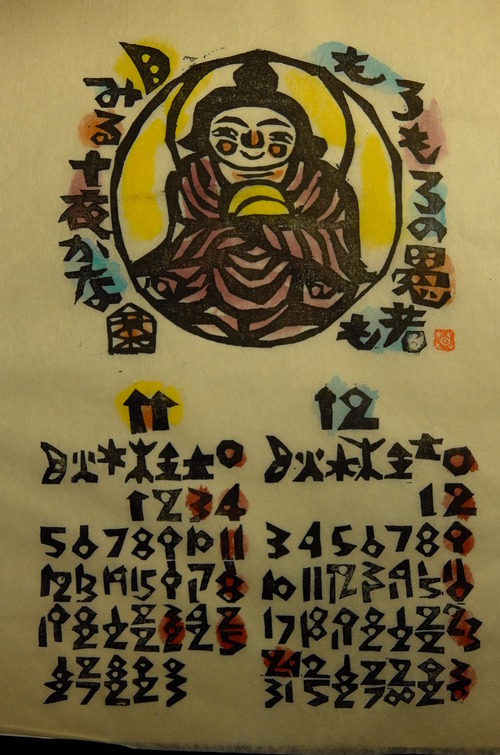 もろもろの愚者も
月みる十夜かな
11
月 火 水 木 金 土 日
1 2 3 4
5 6 7 8 9 10 11
12 13 14 15 16 17 18
19 20 21 22 23 24 25
26 27 28 29 30
12
月 火 水 木 金 土 日
1 2
3 4 5 6 7 8 9
10 11 12 13 14 15 16
17 18 19 20 21 22 23
24 25 26 27 28 29 30
31